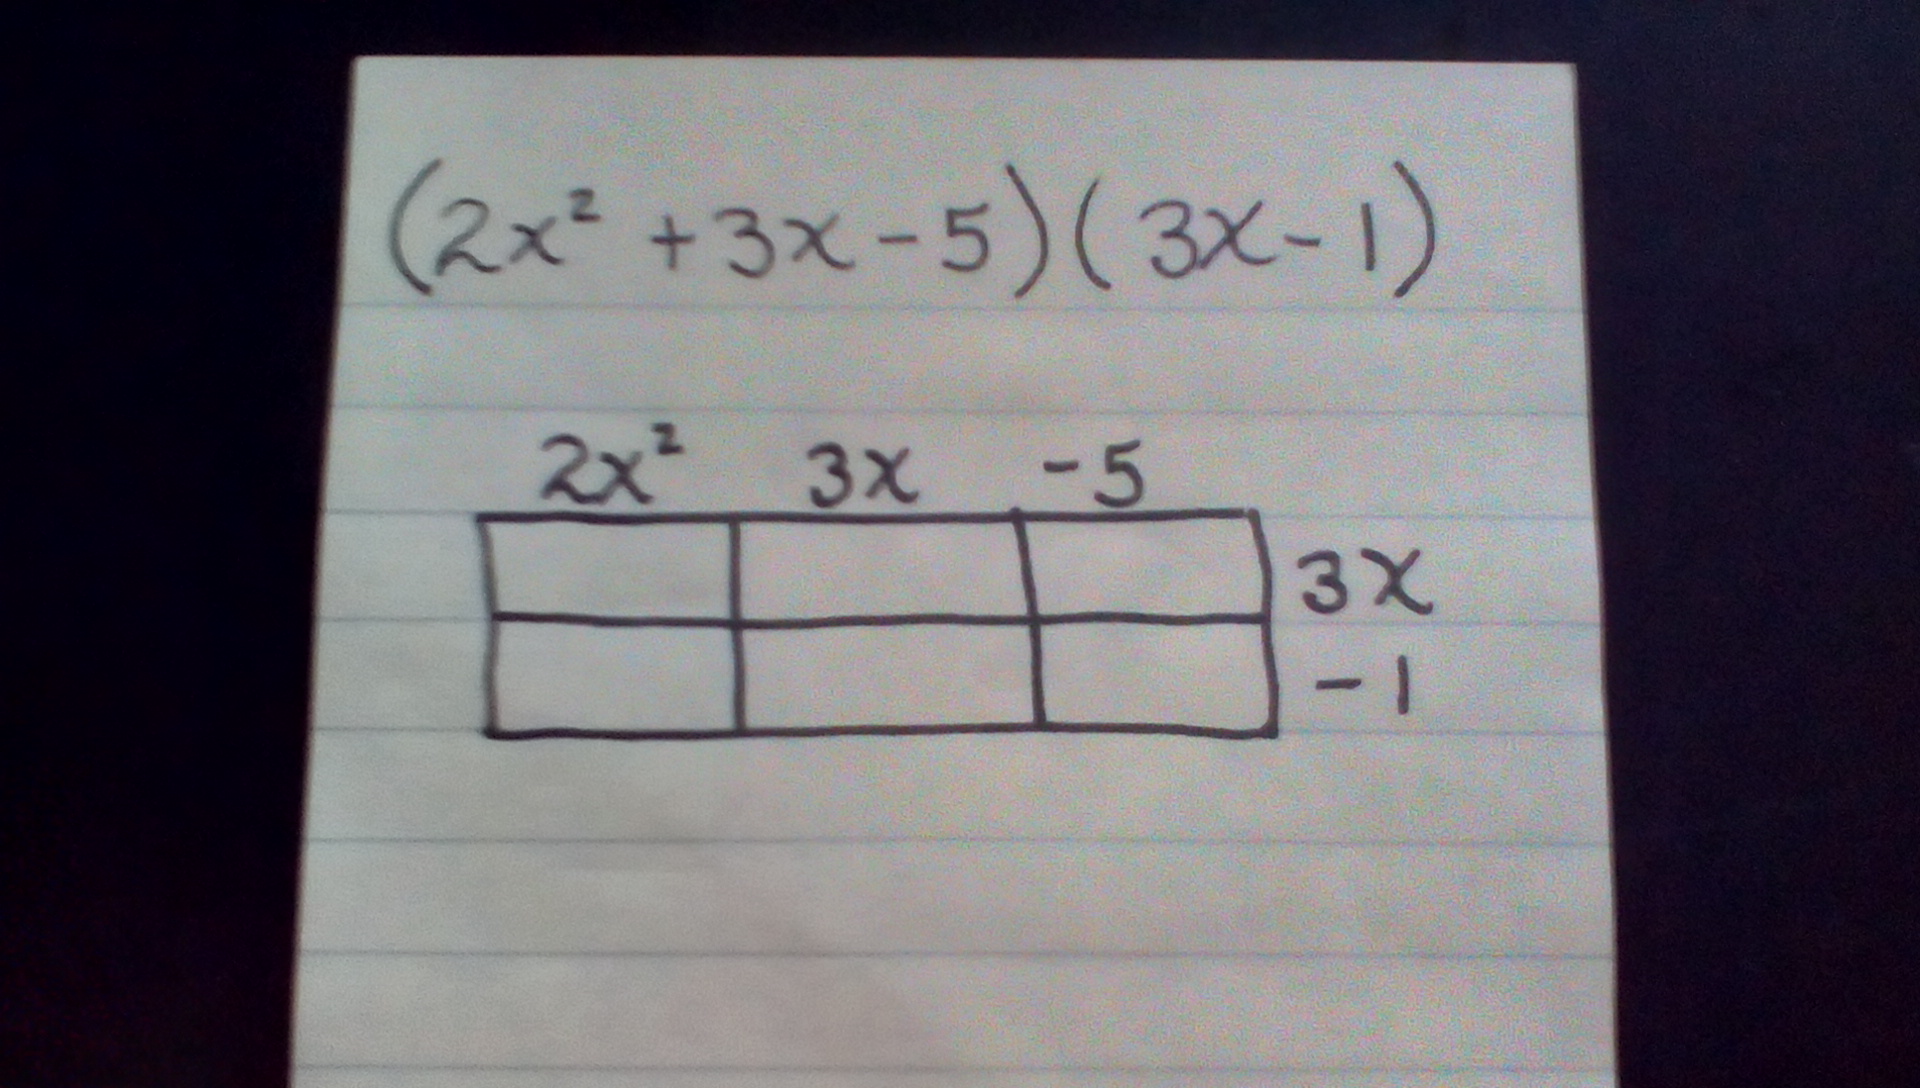 (2x² + 3x - 5)(3x - 1)
2x² 3x -5
3x
-1